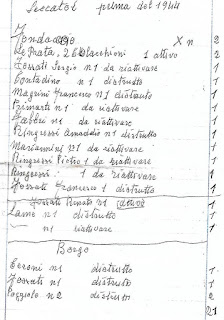 Seccatoi prima del 1944
X n 2
Le Prata, 2 Calacchioni 1 attivo 2
Ferrati Sergio n1 da riattivare 1
Contadino n1 distrutto 1
Magrini Francesco n1 distrutto 1
n1 da riattivare 1
Fabbri n1 da riattivare 1
Ringressi Amaddio n1 distrutto 1
Mariannini n°1 da riattivare 1
Ringressi Pietro 1 da riattivare 1
Ringressi 1 da riattivare 1
Ferrati Francesco 1 distrutto 1
Ferrati Renato n1 (attivo) 1
Lame n1 distrutto 1
" n1 riattivare 1
Borgo
Ceroni n1 distrutto 1
Ferrati n1 distrutto 1
Poggiolo n2 distrutto 2
21